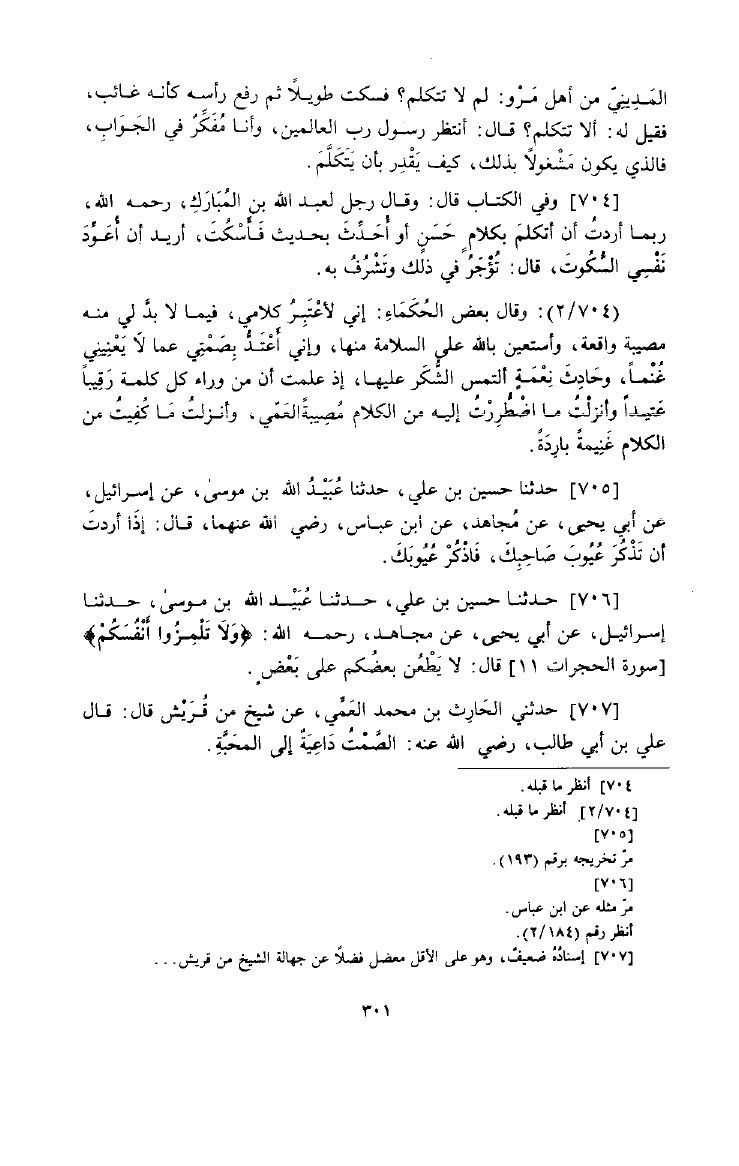 المَـدِينيّ من أهل مَـرْو: لم لا تتكلم؟ فسكت طويلاً ثم رفع رأسه كأنه غائب،
فقيل له: ألا تتكلم؟ قال: أنتظر رسول رب العالمين، وأنا مُفَكِّرٌ في الجَوَابِ،
فالذي يكون مَشْغولاً بذلك، كيف يَقْدِر بأن يَتَكَلَّمَ.
[٧٠٤] وفي الكتاب قال: وقال رجل لعبد الله بن المُبَارَكِ، رحمه الله،
ربما أردتُ أن أتكلمَ بكلامٍ حَسَنٍ أو أُحَدِّثَ بحديث فَأَسْكُتَ، أريد أن أُعَوِّدَ
نَفْسِي السُّكوتَ، قال: تُؤْجَرُ في ذلك وتَشْرُفُ به.
(٢/٧٠٤): وقال بعض الحُكَمَاءِ: إني لأعْتَبِرُ كلامي، فيما لا بدَّ لي منه
مصيبة واقعة، وأستعين بالله على السلامة منها، وإني أَعْتَدُّ بِصَمْتِي عما لَا يَعْنِيني
غُنْماً، وحَادِثَ نِعْمَةٍ ألتمس الشُّكرَ عليها، إذ علمت أن من وراء كل كلمة رَقِيباً
عَتيداً وأنزلْتُ ما اضْطُرِرْتُ إليه من الكلام مُصِيبةَالعَمّي، وأنزلتُ مَا كُفِيتُ من
الكلام غَنِيمةً بارِدَةً.
[٧٠٥] حدثنا حسين بن علي، حدثنا عُبَيْدُ الله بن موسىٰ، عن إسرائيل،
عن أبي يحيى، عن مُجاهد، عن ابن عباس، رضي الله عنهما، قال: إذَا أردتَ
أن تَذْكُرَ عُيُوبَ صَاحِبِكَ، فَاذْكُرْ عُيُوبَكَ.
[٧٠٦] حدثنا حسين بن علي، حدثنا عُبَيْد الله بن موسىٰ، حدثنا
إسرائيل، عن أبي يحيى، عن مجاهد، رحمه الله: ﴿وَلَا تَلْمِزُوا أَنْفُسَكُمْ﴾
[سورة الحجرات ١١] قال: لا يَطْعُن بعضُكم على بَعْضٍ.
[٧٠٧] حدثني الحَارِث بن محمد العَمِّي، عن شيخ من قُرَيْش قال: قال
علي بن أبي طالب، رضي الله عنه: الصَّمْتُ دَاعِيَةٌ إلى المحَبَّةِ.
٧٠٤] أنظر ما قبله.
[٢/٧٠٤] أنظر ما قبله.
[٧٠٥]
مرّ تخريجه برقم (١٩٣).
[٧٠٦]
مرّ مثله عن ابن عباس.
أنظر رقم (٢/١٨٤).
[٧٠٧] إسنادُهُ ضعيفٌ، وهو على الأقل معضل فضلاً عن جهالة الشيخ من قريش...
٣٠١